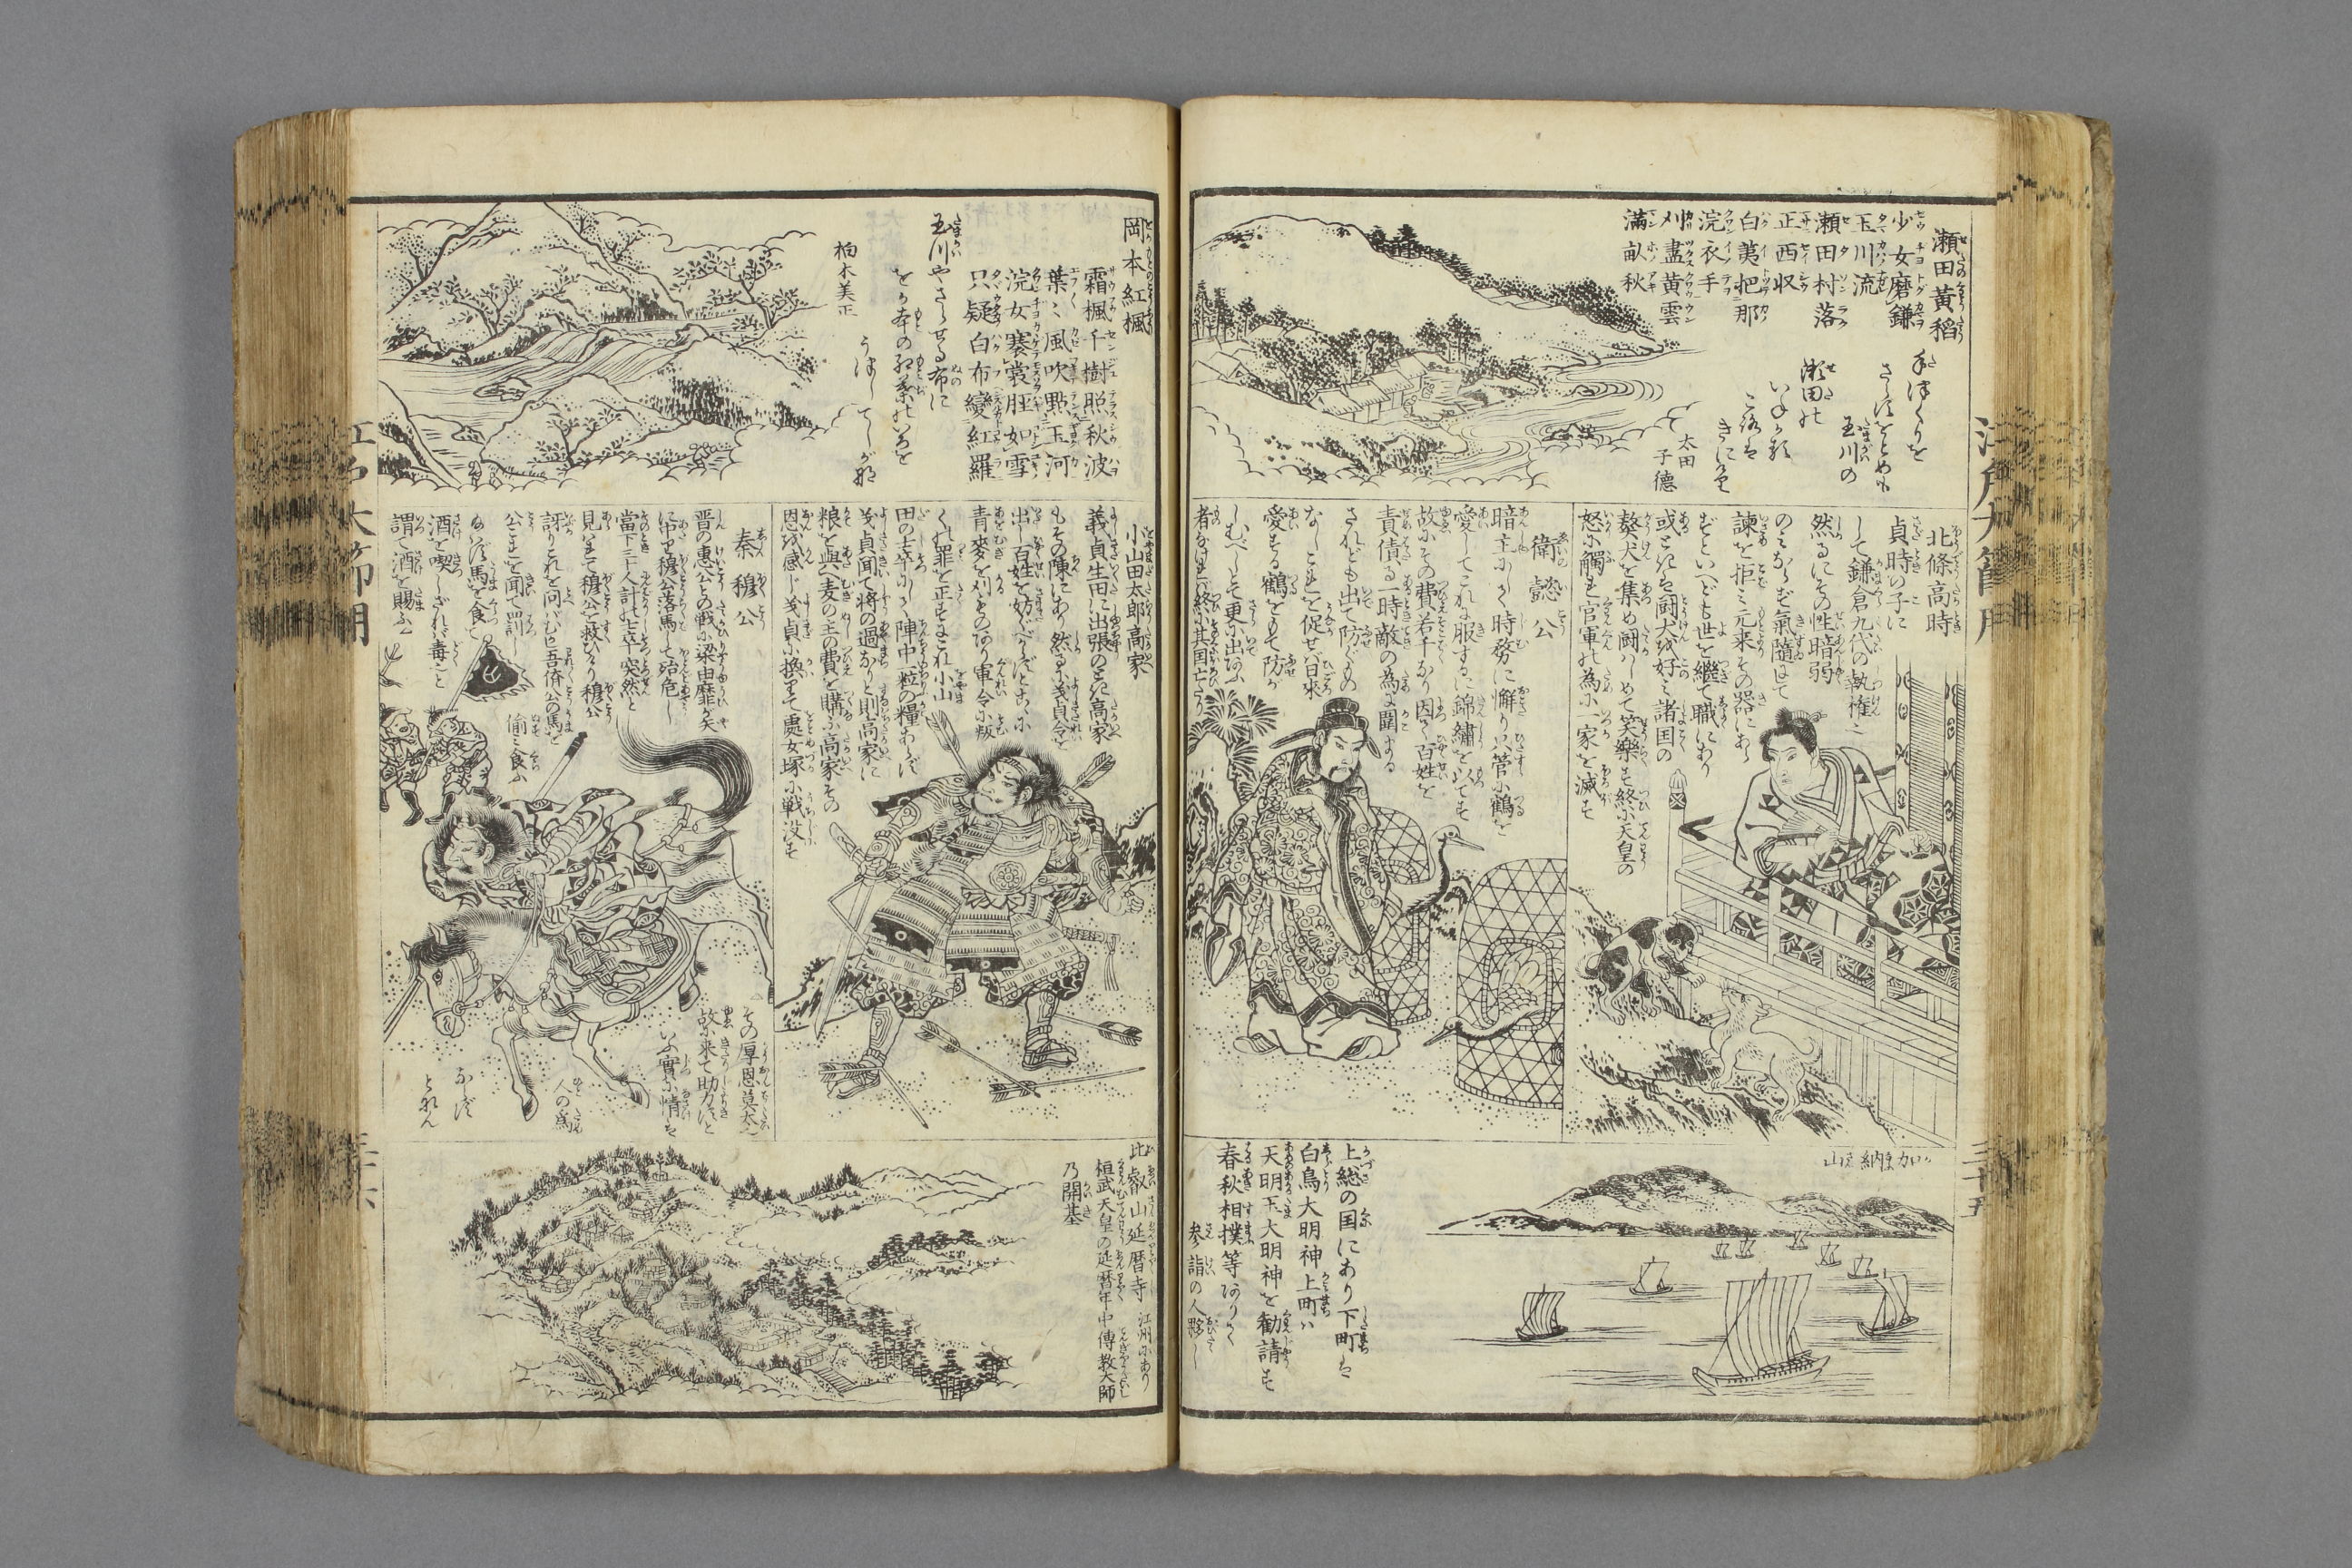 瀬田黄稲
少女磨鎌
玉川流
瀬田村落
正西収
白萬把那
浣衣手
刈盡黄雲
滿畝秋
玉川の
瀬田の
太田
子徳
北條高時
貞時の子に
して鎌倉九代の執権也
然るにその性暗弱
のみならず氣随にて
諫を拒ミ元来その器にあら
ずといへども世を継て職にあり
或ときは闘犬を好ミ諸国の
獒犬を集め闘ハしめて笑楽す終に天皇の
怒に觸れ官軍の為に一家を滅す
衛懿公
暗主にして時務に懈り只管に鶴を
愛してこれに服するに錦繍を以てす
故にその費若干なり因て百姓を
責債る一時敵の為に囲まる
されども出て防ぐもの
なしこれを促せバ日来
愛する鶴をもて防が
しむべしとて更に出あハ
者なけれバ終に其国亡たり
上総の国にあり下町は
白鳥大明神上町ハ
天明玉大明神を勧請す
春秋相撲等ありて
参詣の人夥し
江戸大節用
三十五
岡本紅楓
霜楓千樹照秋波
葉〻風吹點玉河
浣女褰裳脛如雪
只疑白布變紅羅
玉川やさらせる布に
をか本の紅葉のいろを
柏木美正
小山田太郎高家
義貞生田に出張のとき高家
もその陳にあり然るに義貞令を
出し百姓を妨ぐべからずとこゝに
青麥を刈ものあり軍令に叛
くの罪を正すまこれ小山
田の士卒にして陣中一粒の糧あらず
義貞聞て将の過なりと則高家に
粮を與へ麦の主の費を購ふ高家その
恩を感じ義貞に換りて處女塚に戦没す
秦穆公
晋の惠公との戦に梁由靡が矢
に中せ穆公落馬して殆危し
當下三十人計の士卒突然と
見れて穆公を救ひけり穆公
訝りこれを問バ曰吾儕公の馬を
偸ミ食ふ
公これを聞て罰し
めず馬を食て
酒を喫しざれバ毒ごと
謂て酒を賜ふ
その厚恩莫太也
故に来て助力すと
いふ實に情は
人の為
ならず
となん
比叡山延暦寺 江州にあり
桓武天皇の延暦年中傳教大師
乃開基
三十六